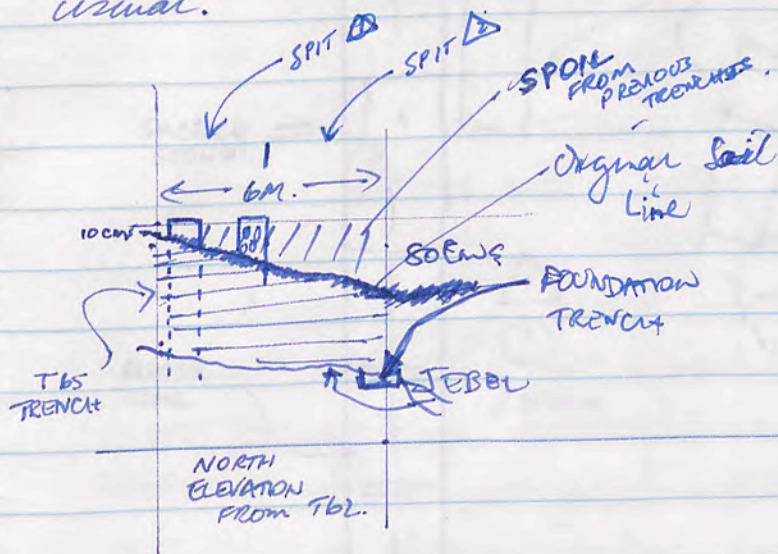 usual.
SPIT 1
SPIT 2
SPOIL
FROM
PREVIOUS
TRENCHES.
6M.
Original Soil
Line
10cm
68
50cms
FOUNDATION
TRENCH
T65
TRENCH
JEBEL
NORTH
ELEVATION
FROM T62.